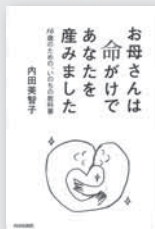 お母さんは
命がけで
あなたを
産みました
16歳のための、いのちの教科書
内田美智子